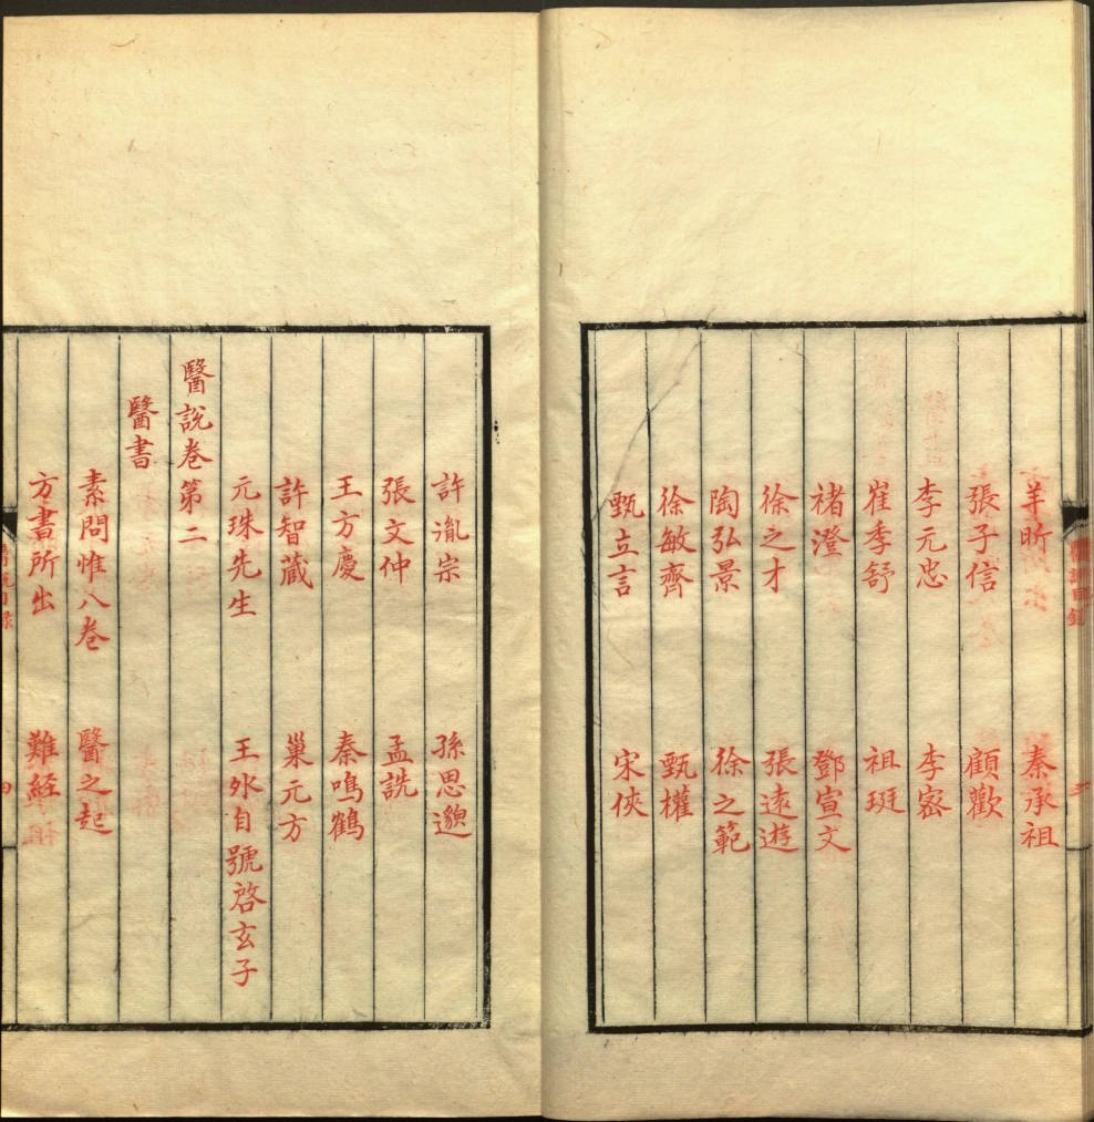 羊昕 秦承祖
張子信 顧歡
李元忠 李密
崔季舒 祖珽
褚澄 鄧宣文
徐之才 張遠遊
陶弘景 徐之範
徐敏齊 甄權
甄立言 宋俠
許胤宗 孫思邈
張文仲 孟詵
王方慶 秦鳴鶴
許智藏 巢元方
元珠先生 王氷自號啓玄子
醫說卷第二
醫書
素問惟八卷 醫之起
方書所出 難経